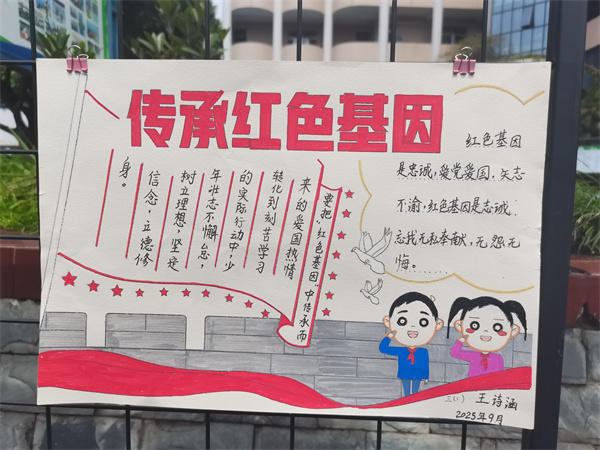 传承红色基因
要把“红色基因”中传承而
来的爱国热情
转化到刻苦学习
的实际行动中,少
年壮志不懈怠,
树立理想,坚定
信念,立德修
身。
红色基因
是忠诚,爱党爱国,矢志
不渝,红色基因是志诚
忘我无私奉献,无怨无
悔。
三(1) 王诗涵
2025年9月